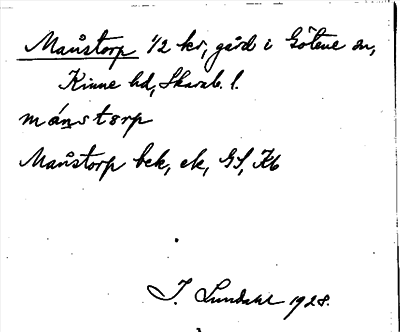 Månstorp 1/2 kr, gård i Götene sn,
Kinne hd, Skarab. l.
månstorp
Månstorp bek, ek, GS, Kb
I. Lundahl 1928.